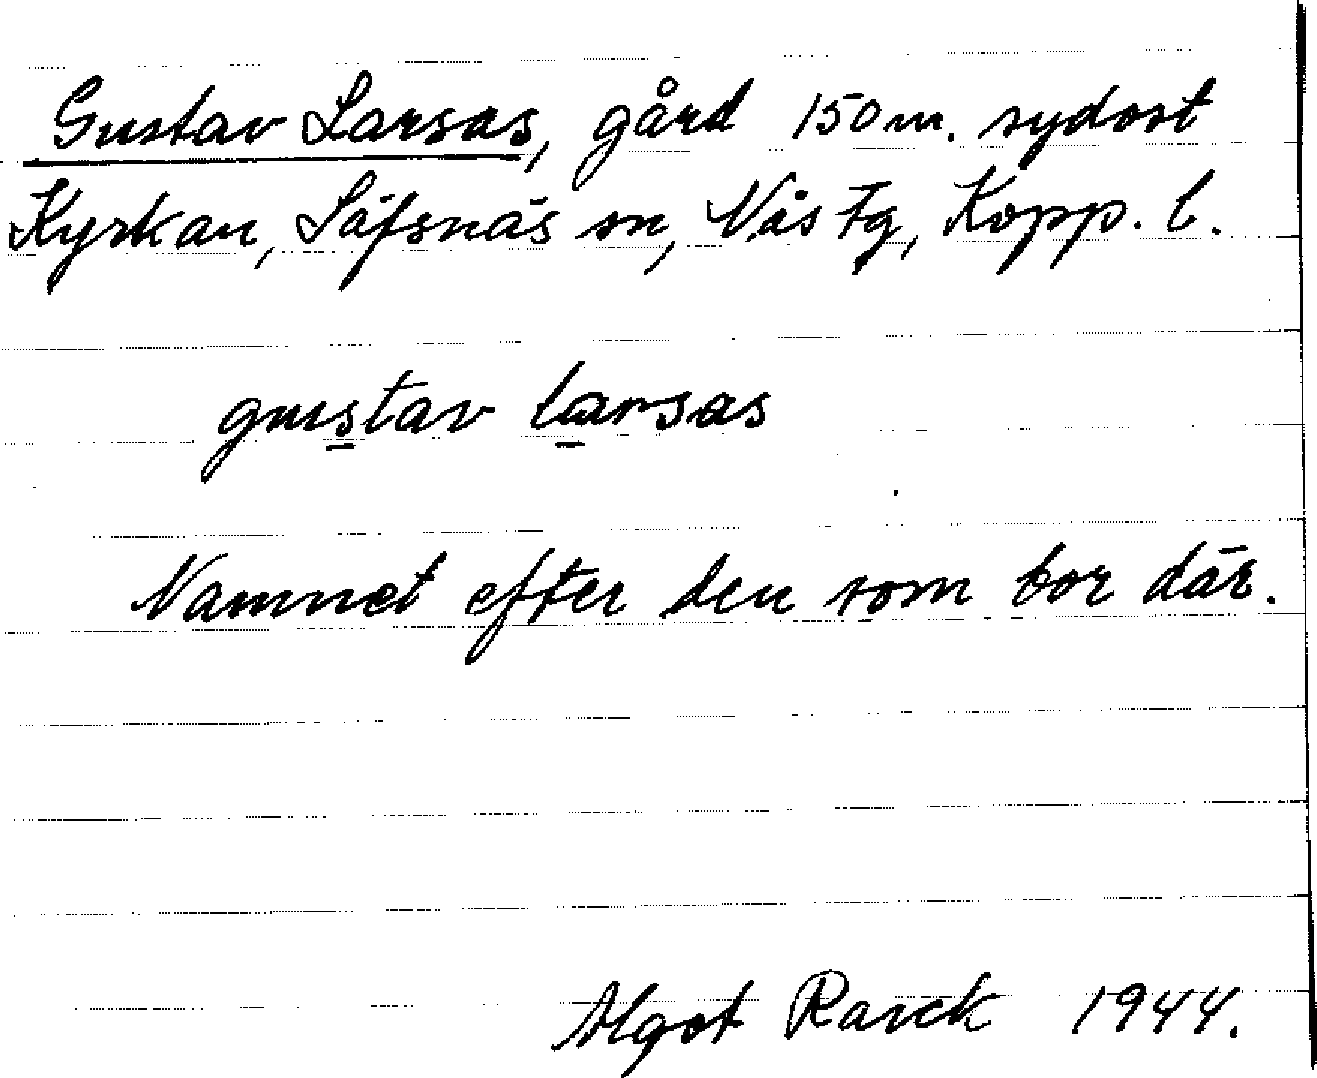 Gustav Larsas, gård 150 m. sydost
Kyrkan, Säfsnäs sn, Nås Fg, Kopp. l.
gustav larsas
Namnet efter den som bor där.
Algot Rarck 1944.